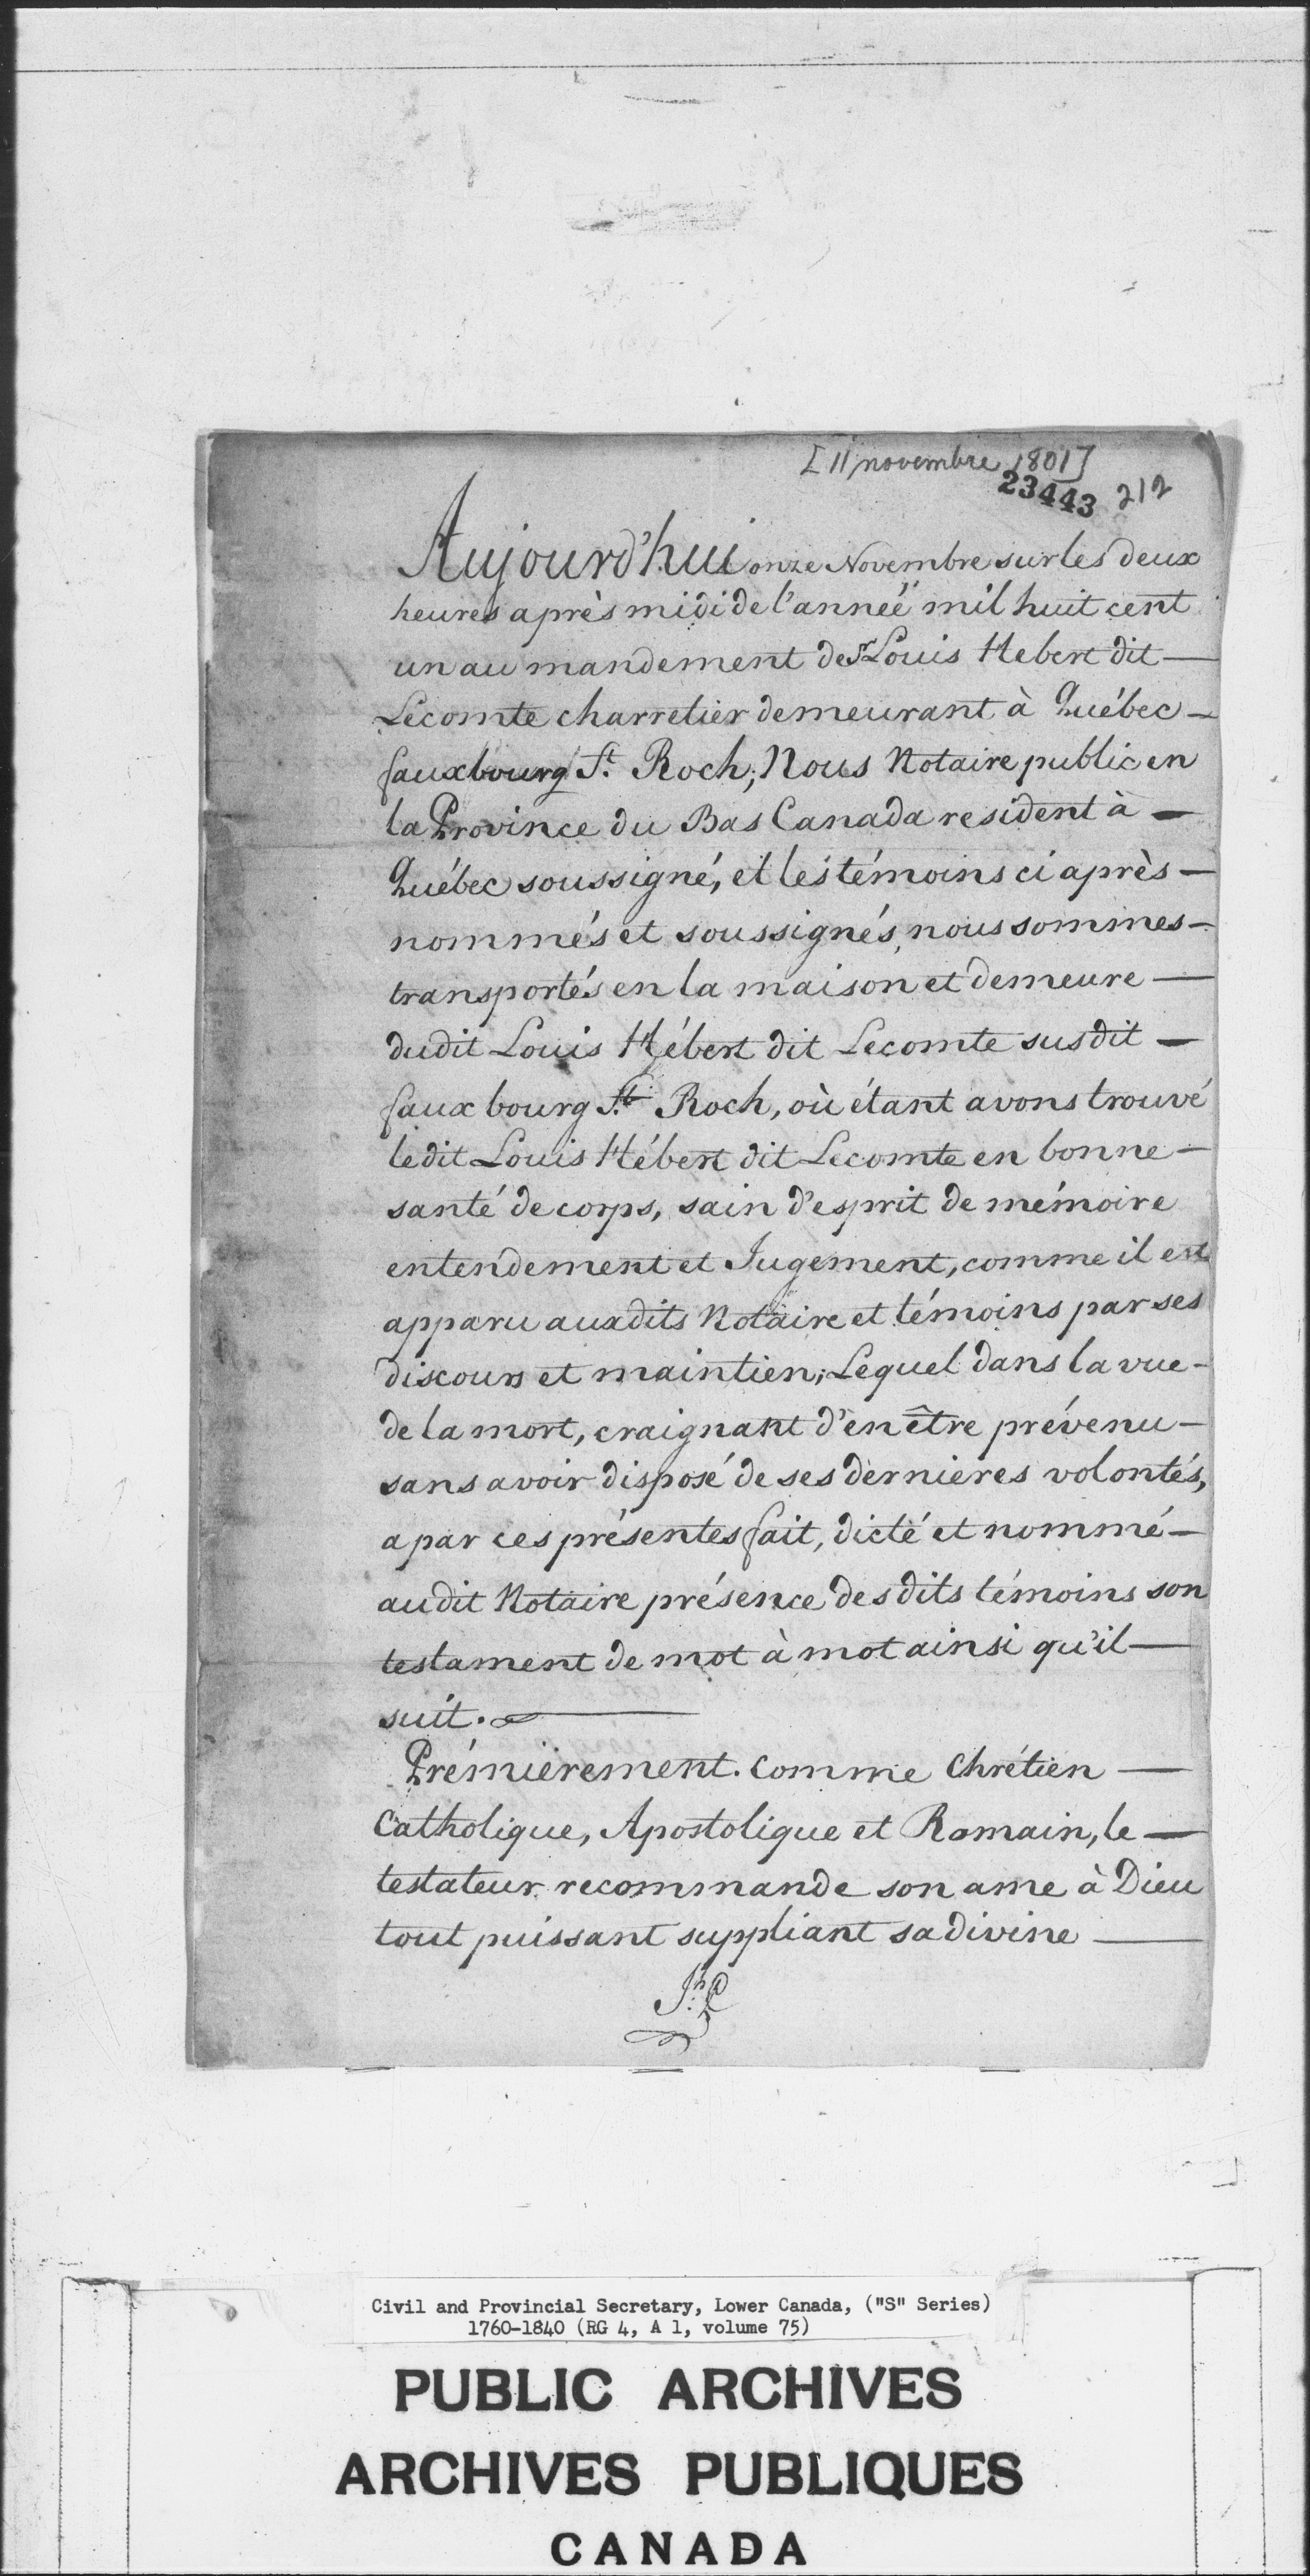 [11 novembre 1801]
23443 212
Aujourd'hui onze Novembre sur les deux
heures après midi de l'année mil huit cent
un au mandement de Sr. Louis Hebert dit —
Lecomte charretier demeurant à Québec —
fauxbourg St. Roch; Nous Notaire public en
la Province du Bas Canada resident à —
Québec soussigné, et les témoins ci après —
nommés et soussignés, nous sommes —
transportés en la maison et demeure —
dudit Louis Hébert dit Lecomte susdit —
faux bourg St. Roch, où étant avons trouvé
ledit Louis Hébert dit Lecomte en bonne —
santé de corps, sain d'esprit de mémoire
entendement et Jugement, comme il est
apparu auxdits Notaire et témoins par ses
discours et maintien; Lequel dans la vue —
de la mort, craignant d'en être prévenu —
sans avoir disposé de ses dernieres volontés,
a par ces présentes fait, dicté et nommé —
audit Notaire présence desdits témoins son
testament de mot à mot ainsi qu'il —
suit. —
Prémièrement. Comme Chrétien —
Catholique, Apostolique et Romain, le —
testateur recommande son ame à Dieu
tout puissant suppliant sa divine —
Civil and Provincial Secretary, Lower Canada, ("S" Series)
1760-1840 (RG 4, A 1, volume 75)
PUBLIC ARCHIVES
ARCHIVES PUBLIQUES
CANADA